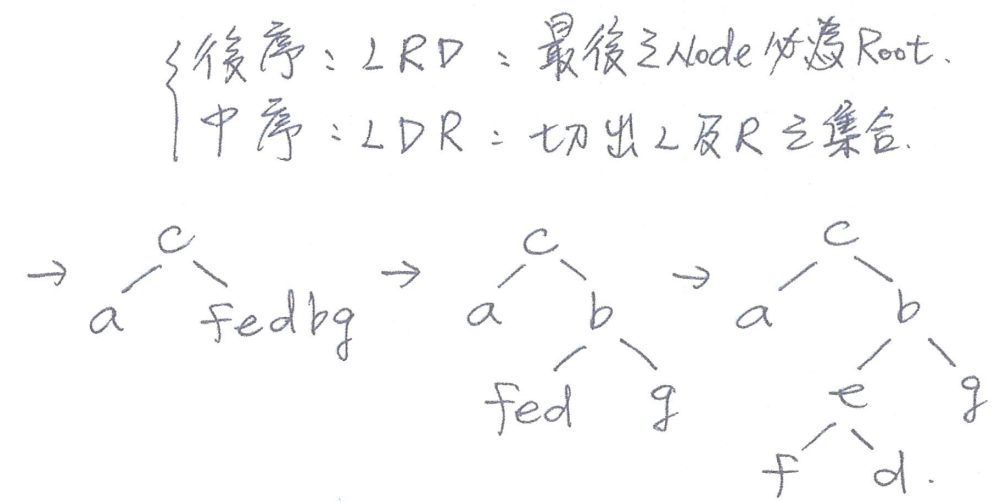 後序：LRD：最後之Node必為Root.
中序：LDR：切出L及R之集合.
→ c → c → c
a fedbg a b a b
fed g e g
f d.